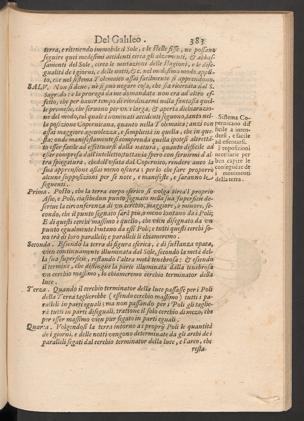 Del Galileo. 383
terra, e ritenendo immobile il Sole, e le stelle fisse, ne possano
seguire quei medesimi accidenti circa gli alzamenti, & abbas-
samenti del Sole, circa le mutazioni delle stagioni, e le dise-
gualità de i giorni, e delle notti, & c. nel modesimo modo appun-
to, che nel sistema Tolemaico assai facilmente si apprendono.
SALV. Non si deve, nè si può negare
Sagredo
sto, che per breve tempo
le promesse, che faranno per
rar del modo, col quale i cotanti accidenti seguono, tanto nel-
la posizione Copernicana, quanto nella Tolemaica; anzi con
assai maggiore agevolezza, e semplicità in quella, che in que-
sta: onde manifestamente si comprenda quella ipotesi altret-
to esser facile ad effettuarsi dalla natura, quanto difficile ad
esser compresa dall'intelletto; tuttavia spero con servirmi d'al-
tra spiegatura, che dell'usata dal Copernico, rendere anco la
sua apprensione assai meno oscura; per lo che fare proporrò
alcune supposizioni per se note, e manifeste, e saranno le se-
guenti.
Sistema Co-
pernicano dif-
ficile a inten-
dersi, e facile
ad effettuarsi.
Proposizioni
necessarie per
ben capire le
conseguenze de
i movimenti
della terra.
Prima. Posto, che la terra corpo sferico si volga circa'l proprio
Asse, e Poli, ciascheduno punto segnato nella sua superficie de-
scrive la circonferenza di un cerchio, maggiore, o minore, se-
condo, che il punto segnato sarà più, o meno lontano da i Poli;
E di questi cerchi massimo è quello, che vien disegnato da un
punto egualmente lontano da essi Poli; e tutti questi cerchi so-
no trà di loro paralleli; e paralleli li chiameremo.
Seconda. Essendo la terra di figura sferica, e di sustanza opaca,
vien continuamente illuminata dal Sole, secondo la metà del-
la sua superficie, restando l'altra metà tenebrosa; & essendo
il termine, che distingue la parte illuminata dalla tenebrosa
un cerchio massimo, lo chiameremo cerchio terminator della
luce.
Terza. Quando il cerchio terminator della luce passasse per i Poli
della Terra taglierebbe (essendo cerchio massimo) tutti i pa-
ralleli in parti eguali; ma non passando per i Poli gli taglie-
rà tutti in parti diseguali, trattone il solo cerchio di mezo, che
per esser massimo vien pur segato in parti eguali.
Quarta. Volgendosi la terra intorno a i proprij Poli le quantità
de i giorni, e delle notti vengono determinate da gli archi de i
paralleli segati dal cerchio terminator della luce, e l'arco, che
resta